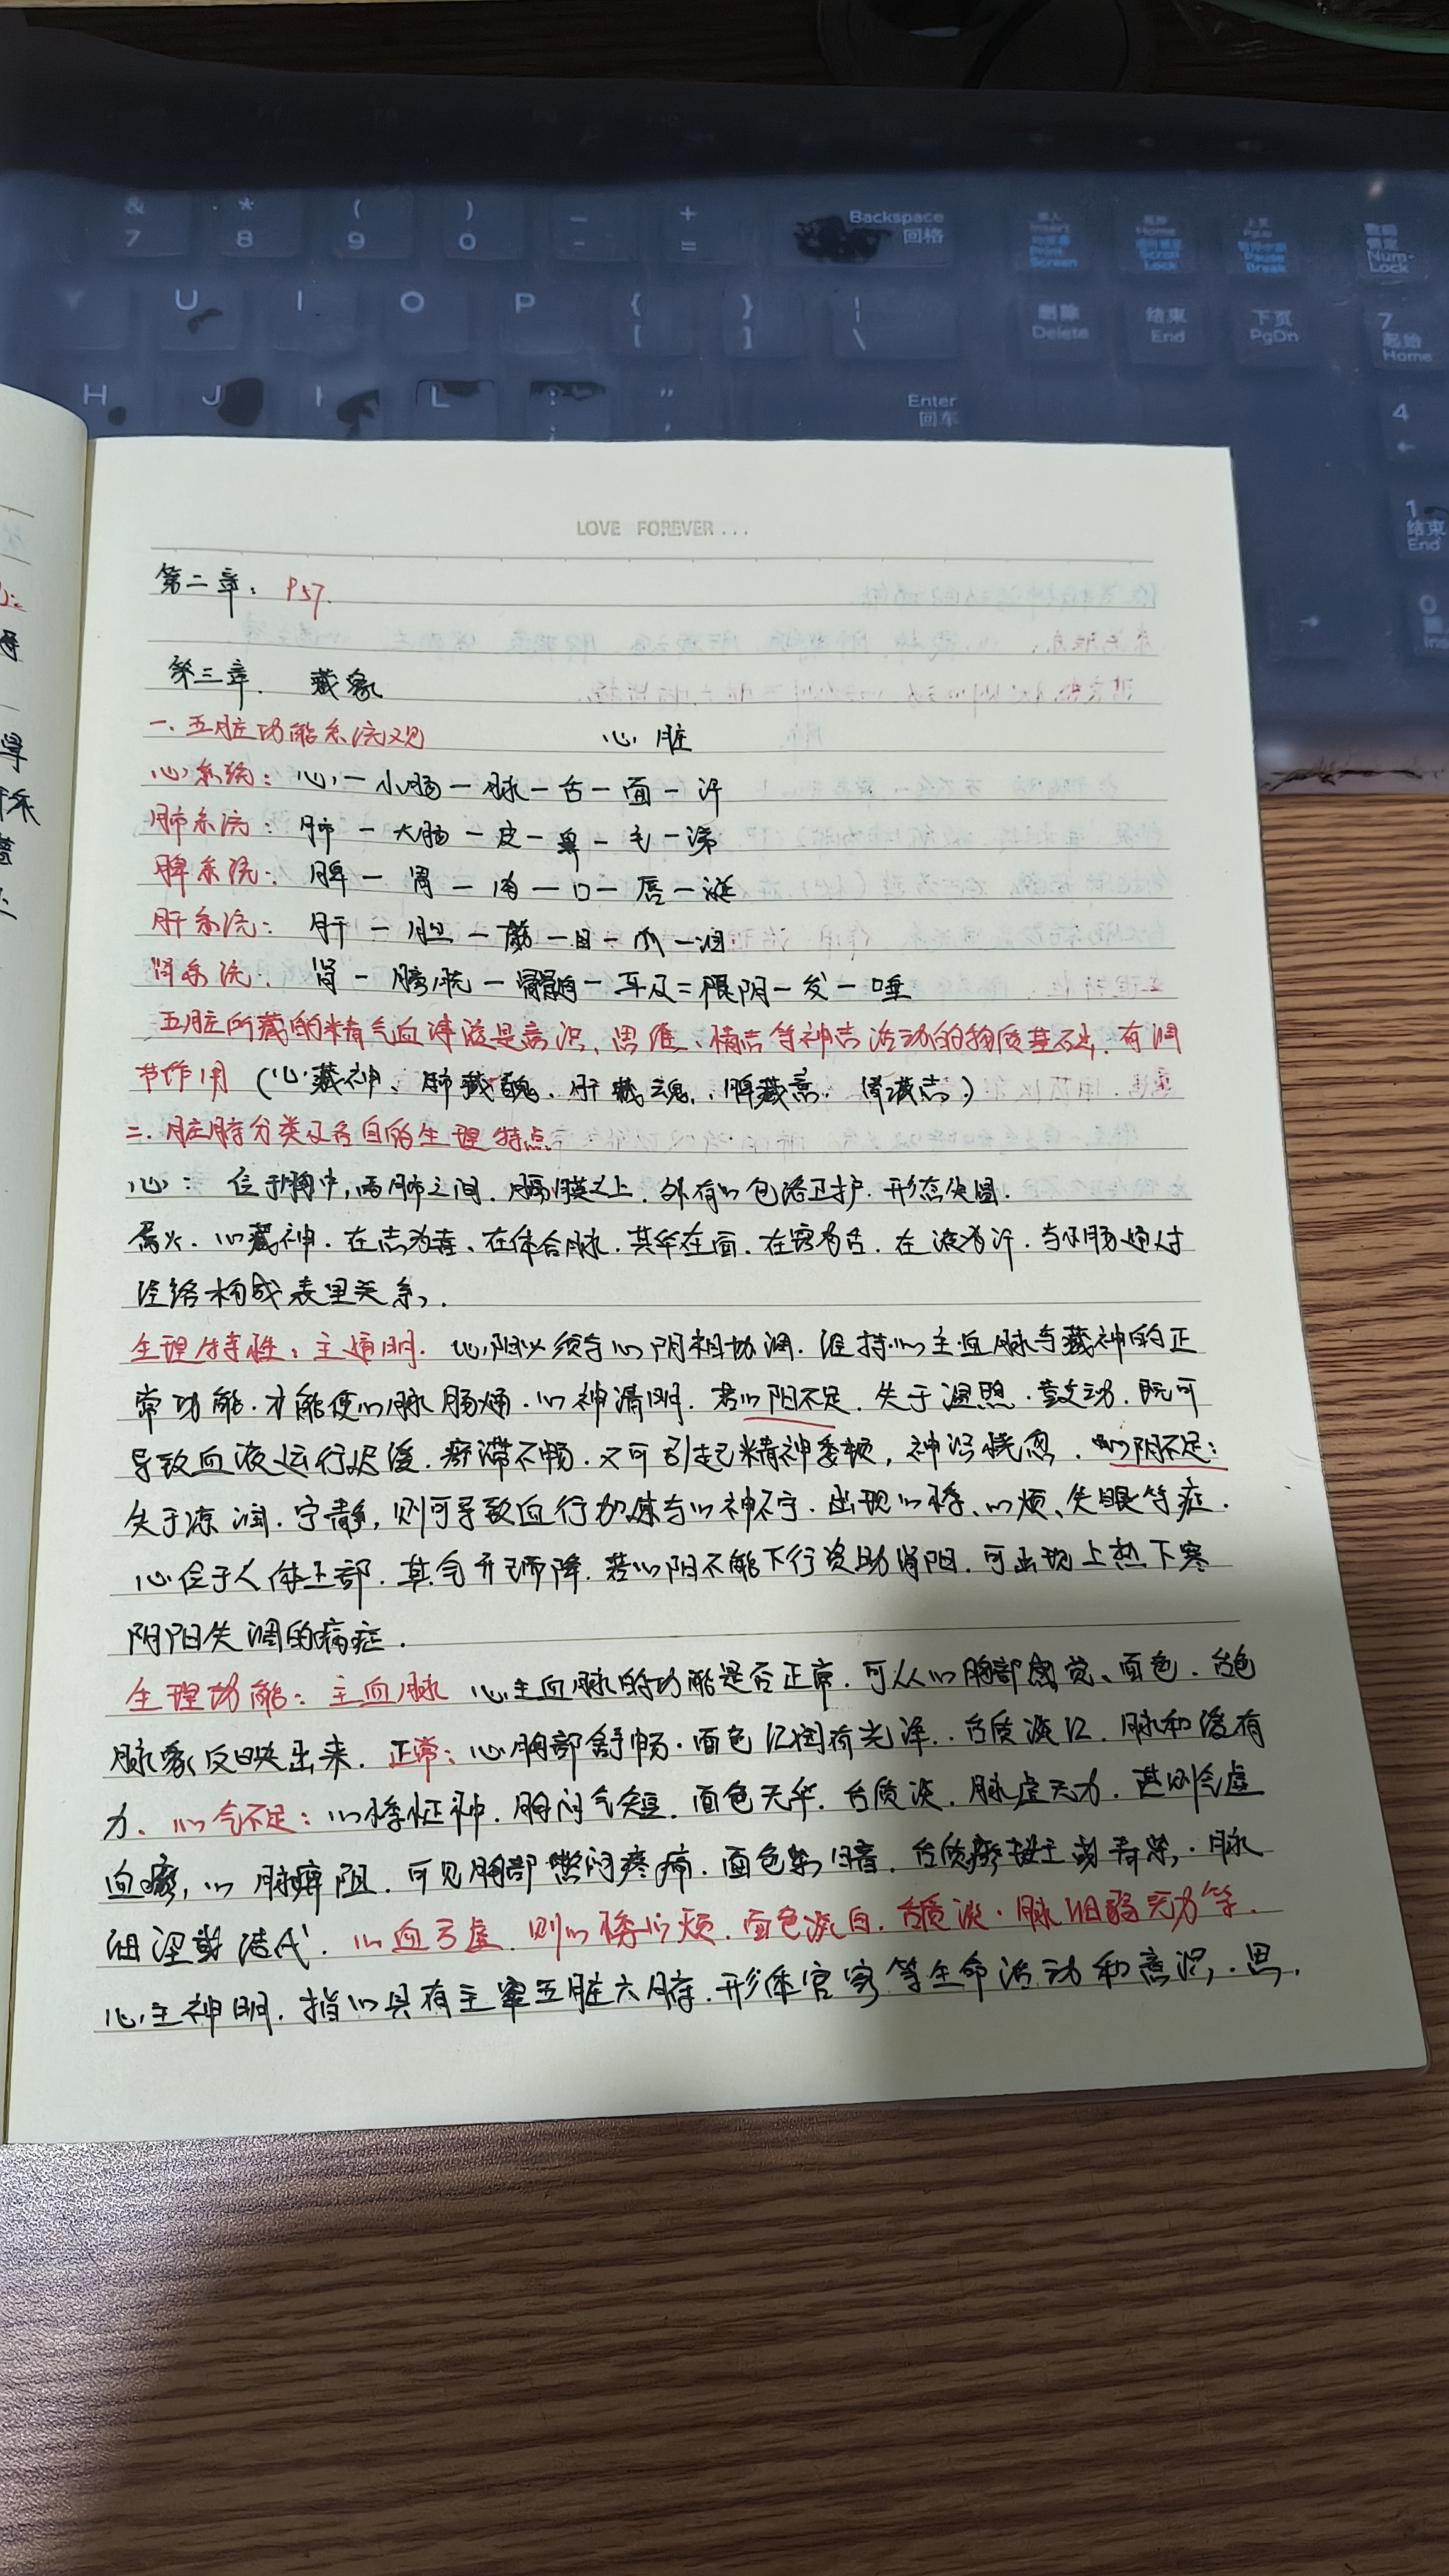 &
7
*
8
(
9
)
0
_
-
+
=
Backspace
回格
Insert
Print
Screen
Home
Scroll
Lock
PgUp
Pause
Break
数码
锁定
Num
Lock
Y U I O P
{
[
}
]
|
\
删除
Delete
结束
End
下页
PgDn
7
起始
Home
H J L
:
;
"
Enter
回车
4
←
1
结束
End
0
LOVE FOREVER...
第二章: P57.
第三章. 藏象
一.五脏功能系统观 心脏
心系统: 心一小肠一脉一舌一面一汗
肺系统: 肺一大肠一皮一鼻一毛一涕
脾系统: 脾一胃一肉一口一唇一涎
肝系统: 肝一胆一筋一目一爪一泪
肾系统: 肾一膀胱一骨髓一耳及二阴一发一唾
五脏所藏的精气血津液是意识、思维、情志等神志活动的物质基础,有调
节作用(心藏神、肺藏魄、肝藏魂、脾藏意、肾藏志)
二.脏腑分类及各自的生理特点
心: 位于胸中,两肺之间.膈膜之上.外有心包络卫护.形态尖圆.
属火.心藏神.在志为喜、在体合脉.其华在面.在窍为舌.在液为汗.与小肠通过
经络构成表里关系.
生理特性:主通明. 心阳必须与心阴相协调.维持心主血脉与藏神的正
常功能.才能使心脉肠通.心神清明.若心阳不足.失于温煦.鼓动.既可
导致血液运行迟缓.瘀滞不畅.又可引起精神委顿,神识恍惚.心阴不足:
失于凉润.宁静,则可导致血行加速与心神不宁.出现心悸、心烦、失眠等症.
心位于人体上部.其气升而降.若心阳不能下行资助肾阳.可出现上热下寒
阴阳失调的病症.
生理功能:主血脉 心主血脉的功能是否正常.可从心胸部感觉、面色.舌色
脉象反映出来.正常:心胸部舒畅.面色红润有光泽.舌质淡红.脉和缓有
力.心气不足:心悸怔忡.胸闷气短.面色无华.舌质淡.脉虚无力.甚则气虚
血瘀,心脉痹阻.可见胸部憋闷疼痛.面色紫暗.舌质瘀斑或青紫.脉
细涩或结代.心血亏虚.则心悸心烦.面色淡白.舌质淡.脉细弱无力等.
心主神明.指心具有主宰五脏六腑.形体官窍等生命活动和意识.思.